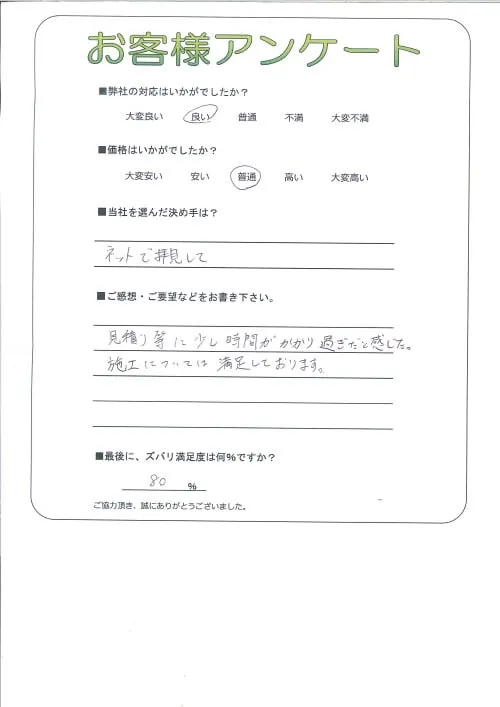 お客様アンケート
■弊社の対応はいかがでしたか？
大変良い 良い 普通 不満 大変不満
■価格はいかがでしたか？
大変安い 安い 普通 高い 大変高い
■当社を選んだ決め手は？
ネットで拝見して
■ご感想・ご要望などをお書き下さい。
見積り等に少し時間がかかり過ぎだと感じた。
施工については満足しております。
■最後に、ズバリ満足度は何％ですか？
80 ％
ご協力頂き、誠にありがとうございました。